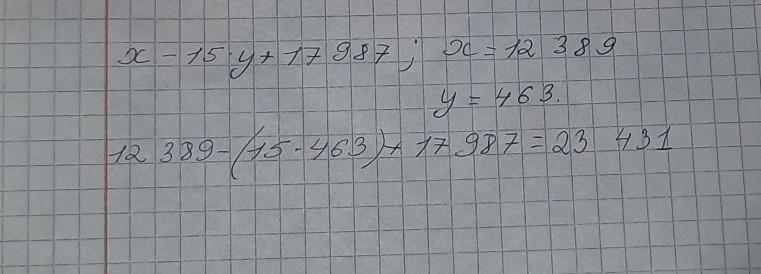 x - 15·y + 17 987; x = 12 389
y = 463.
12 389 - (15 · 463) + 17 987 = 23 431